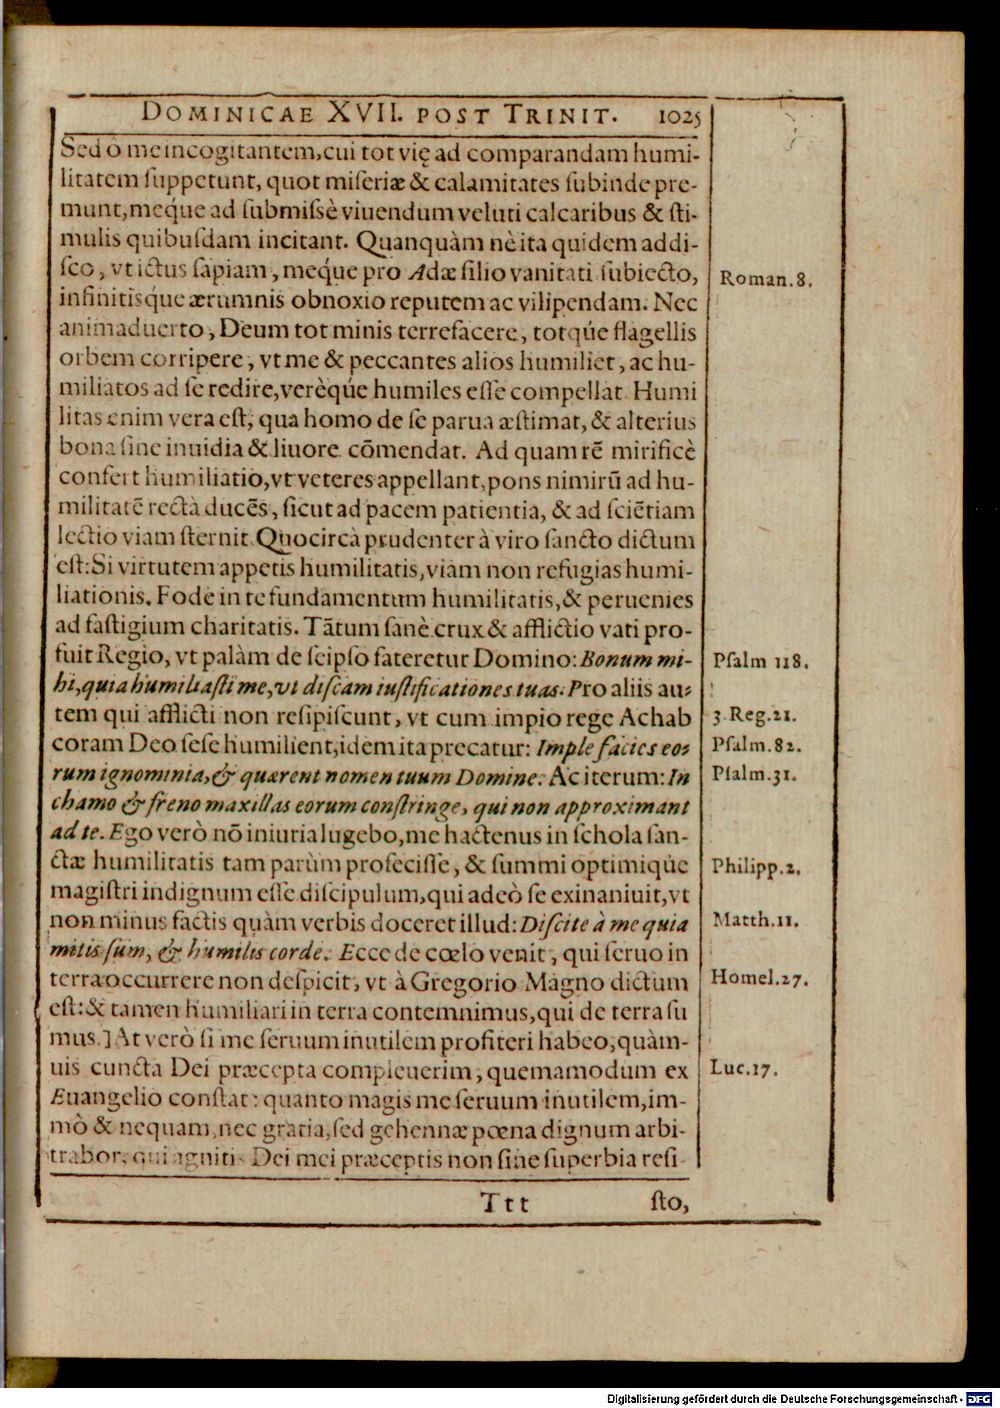 DOMINICAE XVII. POST TRINIT. 1025
Sed ô me incogitantem, cui tot vię ad comparandam humi-
litatem suppetunt, quot miseriæ & calamitates subinde pre-
munt, meq́ue ad submissè viuendum veluti calcaribus & sti-
mulis quibusdam incitant. Quanquàm nè ita quidem addi-
sco, vt ictus sapiam, meq́ue pro Adæ filio vanitati subiecto,
Roman. 8.
infinitisq́ue ærumnis obnoxio reputem ac vilipendam. Nec
animaduerto, Deum tot minis terrefacere, totq́ue flagellis
orbem corripere, vt me & peccantes alios humiliet, ac hu-
miliatos ad se redire, verèq́ue humiles esse compellat. Humi
litas enim vera est, qua homo de se parua æstimat, & alterius
bona sine inuidia & liuore cōmendat. Ad quam rē mirificè
confert humiliatio, vt veteres appellant, pons nimirū ad hu-
militatē rectà ducēs, sicut ad pacem patientia, & ad sciētiam
lectio viam sternit. Quocircà prudenter à viro sancto dictum
est: Si virtutem appetis humilitatis, viam non refugias humi-
liationis. Fode in te fundamentum humilitatis, & peruenies
ad fastigium charitatis. Tātum sanè crux & afflictio vati pro-
fuit Regio, vt palàm de seipso fateretur Domino: Bonum mi-
Psalm 118.
hi, quia humiliasti me, vt discam iustificationes tuas. Pro aliis au-
tem qui afflicti non resipiscunt, vt cum impio rege Achab
3. Reg. 21.
coram Deo sese humilient, idem ita precatur: Imple facies eo-
Psalm. 82.
rum ignominia, & quærent nomen tuum Domine. Ac iterum: In
Psalm. 31.
chamo & freno maxillas eorum constringe, qui non approximant
ad te. Ego verò nō iniuria lugebo, me hactenus in schola san-
ctæ humilitatis tam parùm profecisse, & summi optimiq́ue
Philipp. 2.
magistri indignum esse discipulum, qui adeò se exinaniuit, vt
non minus factis quàm verbis doceret illud: Discite à me quia
Matth. 11.
mitis sum, & humilis corde. Ecce de cœlo venit, qui seruo in
terra occurrere non despicit, vt à Gregorio Magno dictum
Homel. 27.
est: & tamen humiliari in terra contemnimus, qui de terra su
mus.] At verò si me seruum inutilem profiteri habeo, quàm-
uis cuncta Dei præcepta compleuerim, quemamodum ex
Luc. 17.
Euangelio constat: quanto magis me seruum inutilem, im-
mò & nequam, nec gratia, sed gehennæ pœna dignum arbi-
trabor, qui agniti Dei mei præceptis non sine superbia resi-
Ttt sto,
Digitalisierung gefördert durch die Deutsche Forschungsgemeinschaft - DFG